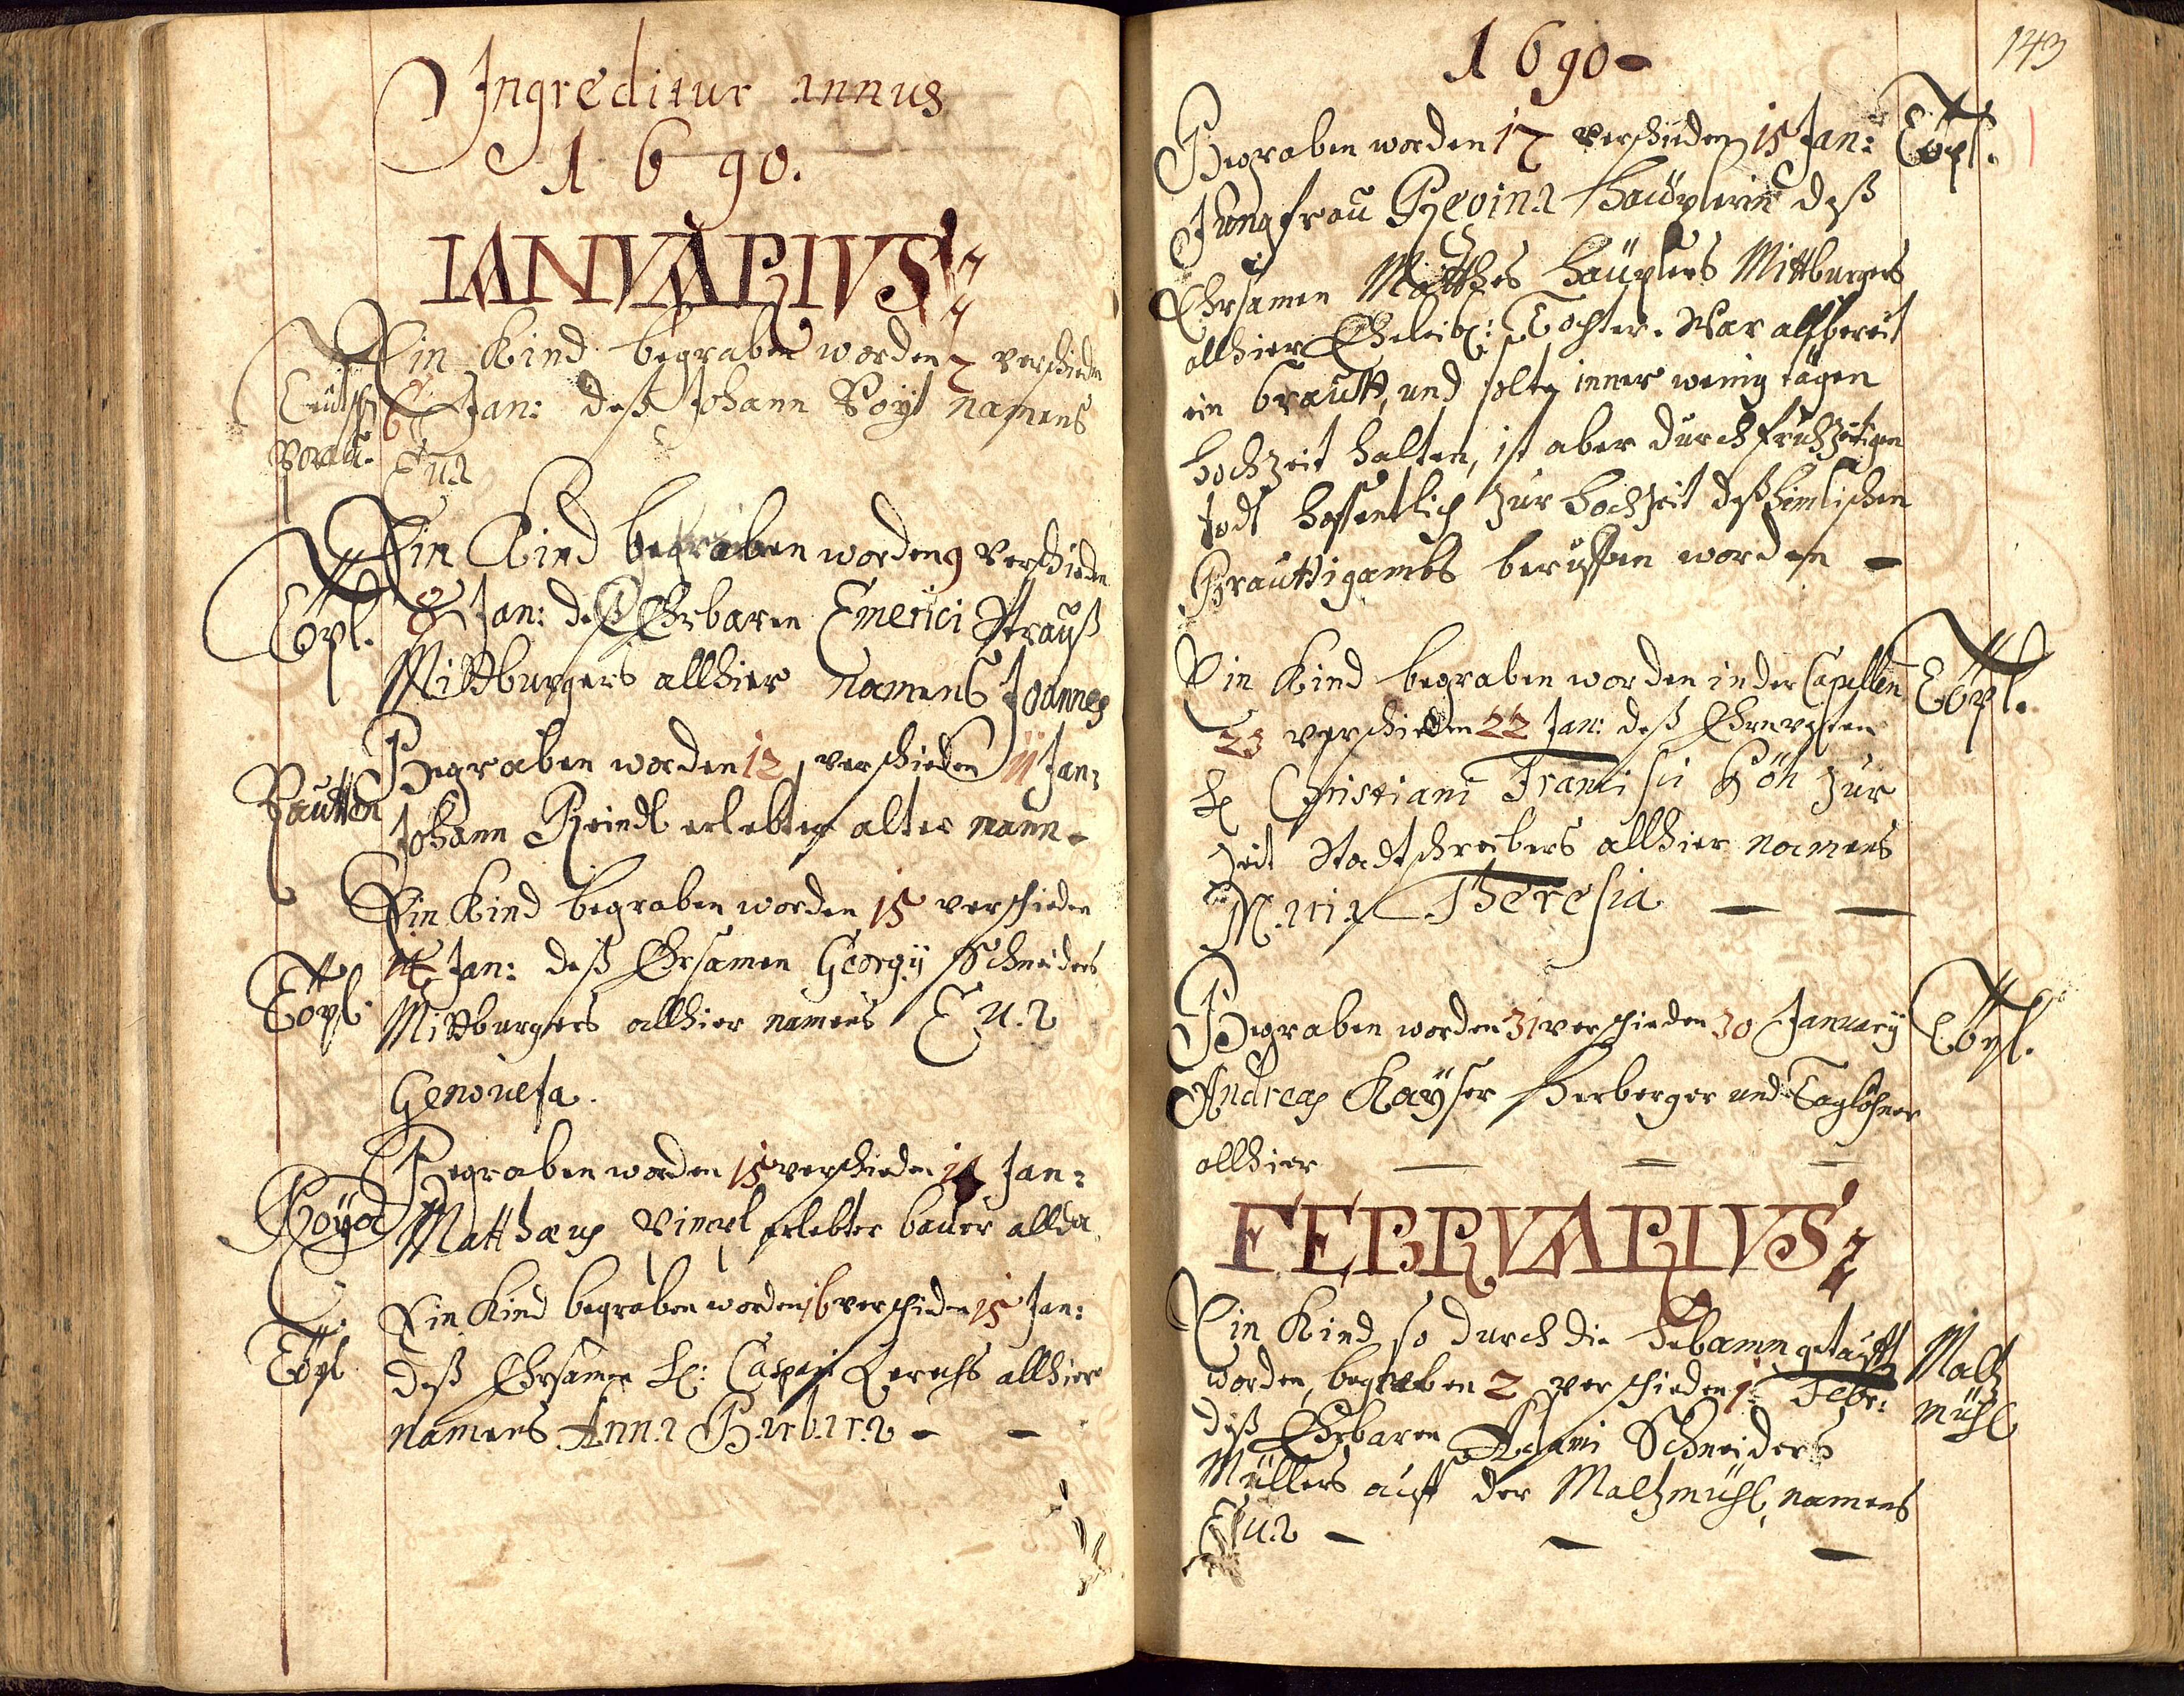 Ingreditur annus
1690.
IANVARIVS
Ein Kind begraben worden 7 verschieden
Teütsch 6 Jan: deß Johann Voyt namens
Borau. Eua
Ein Kind begraben worden 9 verschieden
Töpl. 8 Jan: deß Ehrbaren Emerici Strauß
Mittburgers allhier namens Joannes
Begraben worden 12 verschieden 11 Jan:
Pautten Johann Reindl erlebter alter mann -
Ein Kind begraben worden 15 verschieden
14 Jan: deß Ehrsamen Georgÿ Schneiders
Töpl. Mittburgers allhier namens Eua
Genouefa.
Begraben worden 15 verschieden 14 Jan:
Matthæus erlebter bauer allda
Ein Kind begraben worden 16 verschieden 15 Jan:
Töpl deß Ehrsamen H: Caspari Lerchs allhier
namens Anna Barbara - -
143
1690 -
Begraben worden 17 verschieden 15 Jan: Töpl.
Jungfrau Regina Haüplerin deß
Ehrsamen Matthes Haüplers Mittburgers
allhier Eheleibl: Tochter. War allbereit
ein brautt, und solte inner wenig tägen
hochzeit halten, ist aber durch fruhzeitigen
todt hoffentlich zur hochzeit deß himlischen
Brauttigambs beruffen worden -
Ein Kind begraben worden in der Capellen Töpl.
23 verschieden 22 Jan: deß Ehrnvesten
H Christiani Francisci zur
zeit Stadtschreibers allhier namens
Maria Theresia - -
Begraben worden 31 verschieden 30 January Töpl.
Andreas Kaÿser Herberger und Taglöhner
allhier - - -
FEBRVARIVS
Ein Kind so durch die Hebamn getaufft Maltz
worden, begraben 2 verschieden 1 Febr: mühl
deß Ehrbaren Adami Schneiders
Müllers auff der Maltzmühl, namens
Eua - - -